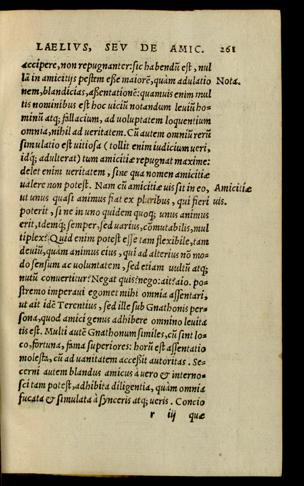 LAELIVS, SEV DE AMIC. 261
accipere, non repugnanter: sic habendũ est, nul
lã in amicitijs pestem eße maiorẽ, quàm adulatio Nota.
nem, blandicias, aßentationẽ: quamuis enim mul
tis nominibus est hoc viciũ notandum leuiũ ho-
minũ atq; fallacium, ad voluptatem loquentium
omnia, nihil ad ueritatem. Cũ autem omniũ rerũ
simulatio est uitiosa (tollit enim iudicium ueri,
idq́; adulterat) tum amicitiæ repugnat maxime:
delet enim ueritatem, sine qua nomen amicitiæ
ualere non potest. Nam cũ amicitiæ uis sit in eo, Amicitiæ
ut unus quasi animus fiat ex pluribus, qui fieri uis.
poterit, si ne in uno quidem quoq; unus animus
erit, idemq́; semper, sed uarius, cõmutabilis, mul
tiplex? Quid enim potest esse tam flexibile, tam
deuiũ, quàm animus eius, qui ad alterius nõ mo-
do sensum ac uoluntatem, sed etiam uultũ atq;
nutũ conuertitur? Negat quis? nego: ait? aio. po-
stremo imperaui egomet mihi omnia assentari,
ut ait idẽ Terentius, sed ille sub Gnathonis per-
sona, quod amici genus adhibere omnino leuita
tis est. Multi autẽ Gnathonum similes, cũ sint lo-
co, fortuna, fama superiores: horũ est assentatio
molesta, cũ ad uanitatem acceßit autoritas. Se-
cerni autem blandus amicus à uero & interno-
sci tam potest, adhibita diligentia, quàm omnia
fucata & simulata à synceris atq; ueris. Concio
r iij quæ